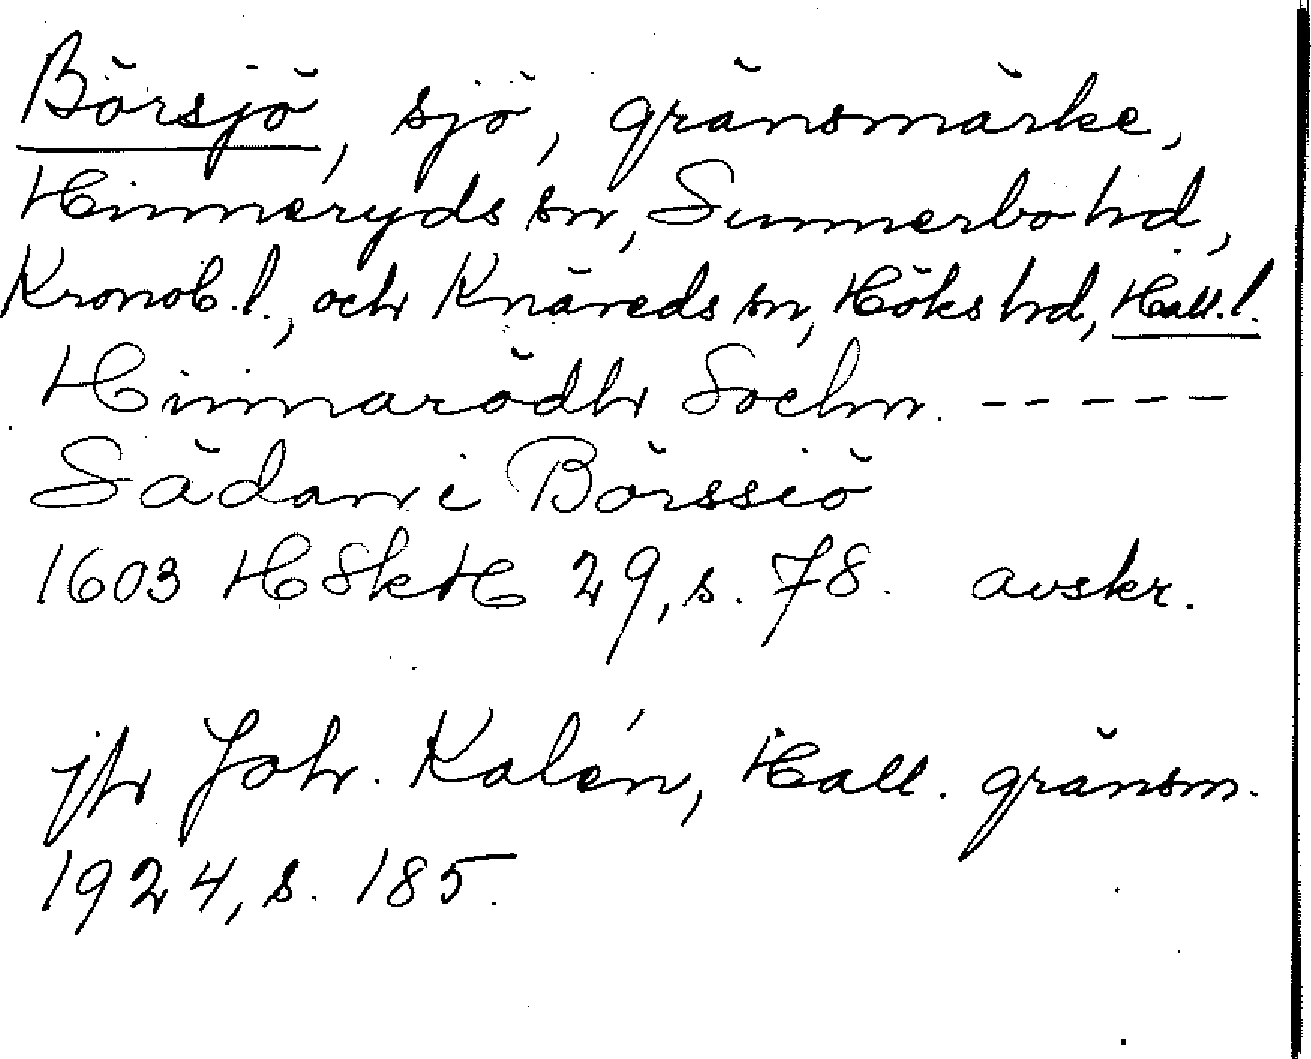 Börsjö, sjö, gränsmärke,
Hinneryds sn, Sunnerbo hd,
Kronob. l., och Knäreds sn, Höks hd, Hall. l.
Hinnarödh Sochn. -----
Sädan i Börssiö
1603 H Sk H 29, s. 78. avskr.
jfr Joh. Kalén, Hall. gränsm.
1924, s. 185.